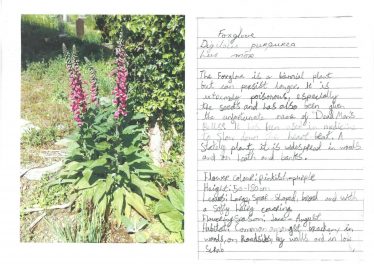 Foxglove
Digitalis purpurea
Lus mór
The Foxglove is a biennial plant
but can persist longer. It is
extremely poisonous, especially
the seeds and has also been given
the unfortunate name of Dead Man's
Bells. It has been used in medicine
to slow down the heart beat. A
Stately plant, it is widespread in woods
and on heath and banks.
Flower colour: pinkish-purple
Height: 50-150cm
Leaves: Large, spear shaped, broad and with
a softly hairy
Flowering Season: June - August
Habitat: Common amongst bracken, in
woods, on Roadsides, by walls and in low
Scrub